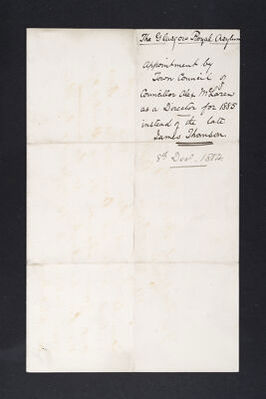 The Glasgow Royal Asylum
Appointment by
Town Council of
Councillor Alex McLaren
as a Director for 1885
instead of the late
James Thomson.
8th Decr. 1884